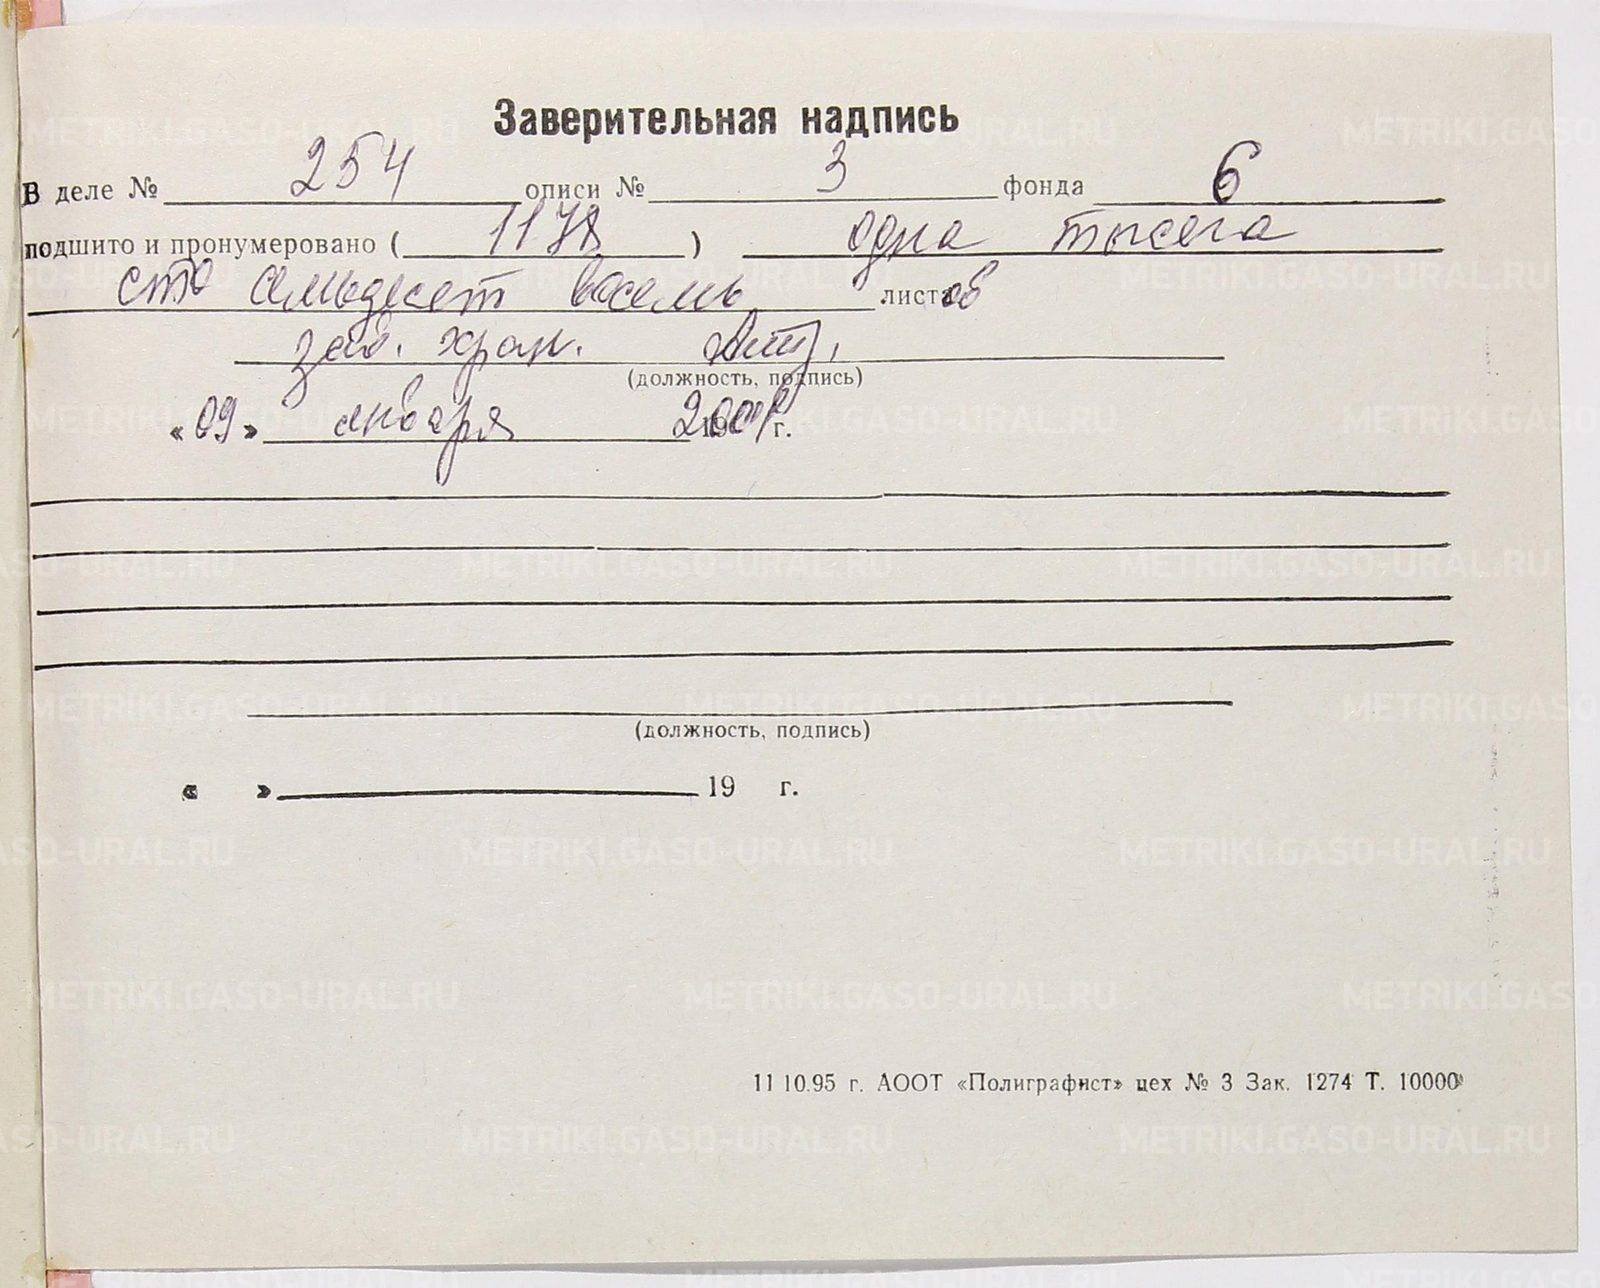 Заверительная надпись
В деле № 254 описи № 3 фонда 6
подшито и пронумеровано ( 1178 ) одна тысеча
сто семьдесят восемь листов
зав. хран.
(должность, подпись)
«09» января г.
(должность, подпись)
« » 19 г.
11 10.95 г. АООТ «Полиграфист» цех № 3 Зак. 1274 Т. 10000
METRIKI.GASO-URAL.RU